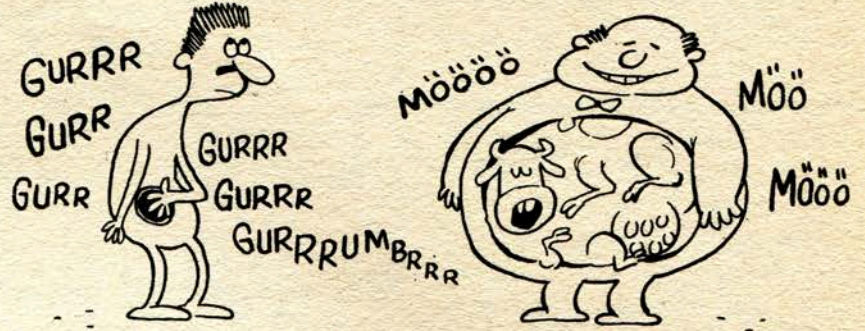 GURRR
GURR
GURR
GURRR
GURRR
GURRRUMBRRR
MÖÖÖÖ
MÖÖ
MÖÖÖ